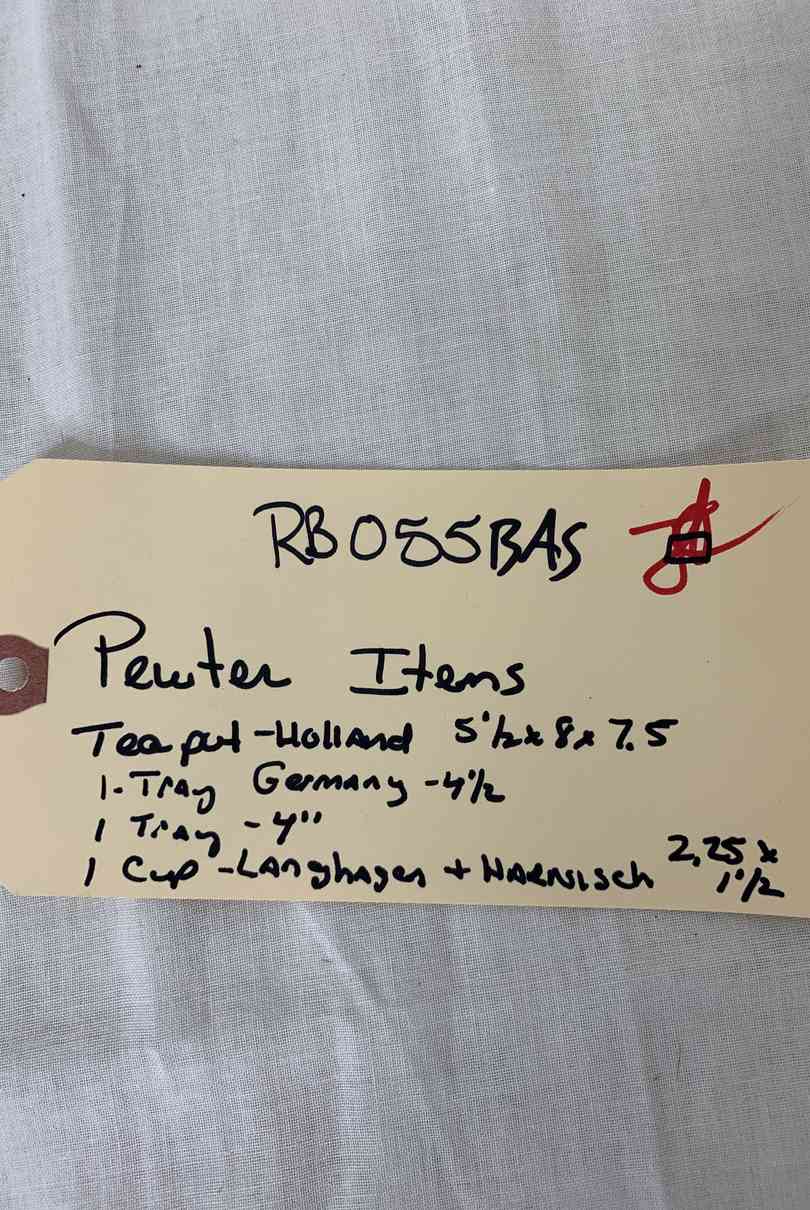 RB055BAS
Pewter Items
Teapot - Holland 5 1/2 x 8 x 7.5
1 - Tray Germany - 4 1/2
1 Tray - 4"
1 Cup - Langhagen + Harnisch 2.25 x
1 1/2